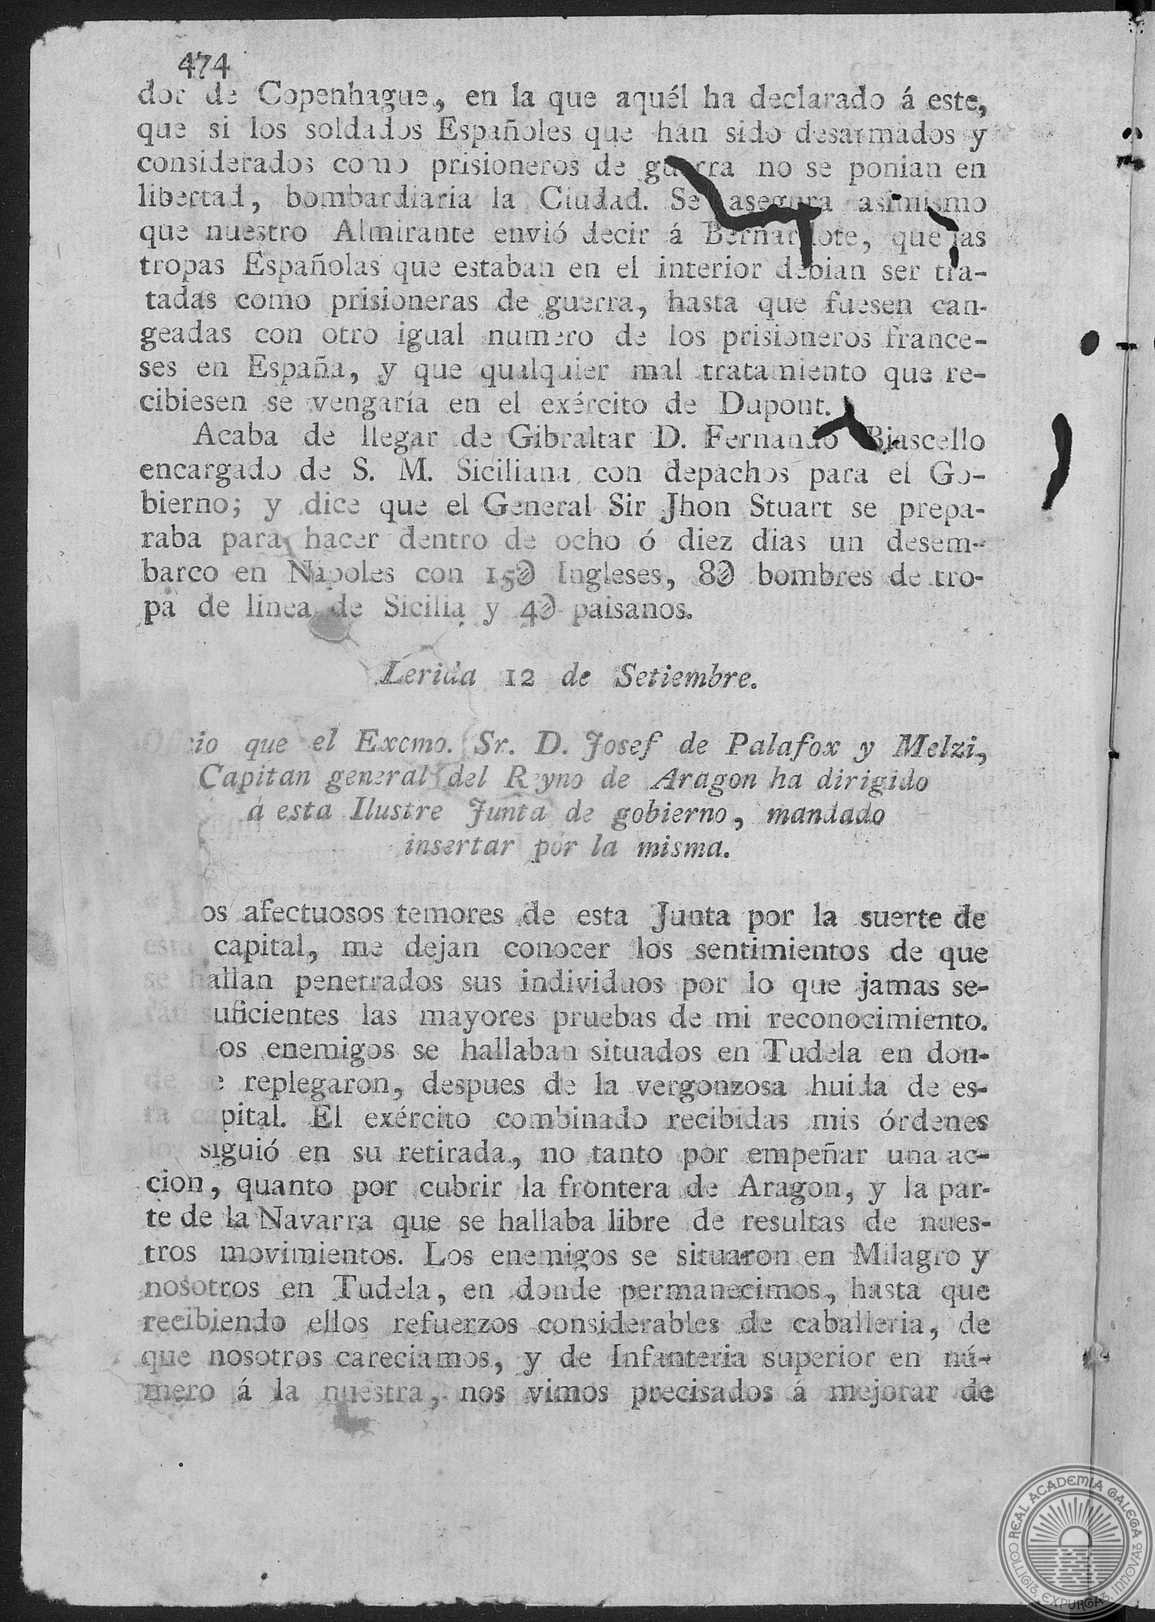 474
dor de Copenhague, en la que aquél ha declarado á este,
que si los soldados Españoles que han sido desarmados y
considerados como prisioneros de guerra no se ponian en
libertad, bombardiaria la Ciudad. Se asegura asimismo
que nuestro Almirante envió decir á Bernardote, que las
tropas Españolas que estaban en el interior debian ser tra-
tadas como prisioneras de guerra, hasta que fuesen can-
geadas con otro igual numero de los prisioneros france-
ses en España, y que qualquier mal tratamiento que re-
cibiesen se vengaría en el exército de Dupont.
Acaba de llegar de Gibraltar D. Fernando Biascello
encargado de S. M. Siciliana con depachos para el Go-
bierno; y dice que el General Sir Jhon Stuart se prepa-
raba para hacer dentro de ocho ó diez dias un desem-
barco en Napoles con 15∂ Ingleses, 8∂ bombres de tro-
pa de linea de Sicilia y 4∂ paisanos.
Lerida 12 de Setiembre.
Oficio que el Excmo. Sr. D. Josef de Palafox y Melzi,
Capitan general del Reyno de Aragon ha dirigido
á esta Ilustre Junta de gobierno, mandado
insertar por la misma.
Los afectuosos temores de esta Junta por la suerte de
esta capital, me dejan conocer los sentimientos de que
se hallan penetrados sus individuos por lo que jamas se-
ran suficientes las mayores pruebas de mi reconocimiento.
Los enemigos se hallaban situados en Tudela en don-
de se replegaron, despues de la vergonzosa huida de es-
ta capital. El exército combinado recibidas mis órdenes
los siguió en su retirada, no tanto por empeñar una ac-
cion, quanto por cubrir la frontera de Aragon, y la par-
te de la Navarra que se hallaba libre de resultas de nues-
tros movimientos. Los enemigos se situaron en Milagro y
nosotros en Tudela, en donde permanecimos, hasta que
recibiendo ellos refuerzos considerables de caballeria, de
que nosotros careciamos, y de Infanteria superior en nú-
mero á la nuestra, nos vimos precisados á mejorar de
REAL ACADEMIA GALEGA
COLLIGIT EXPURGAT INNOVAT